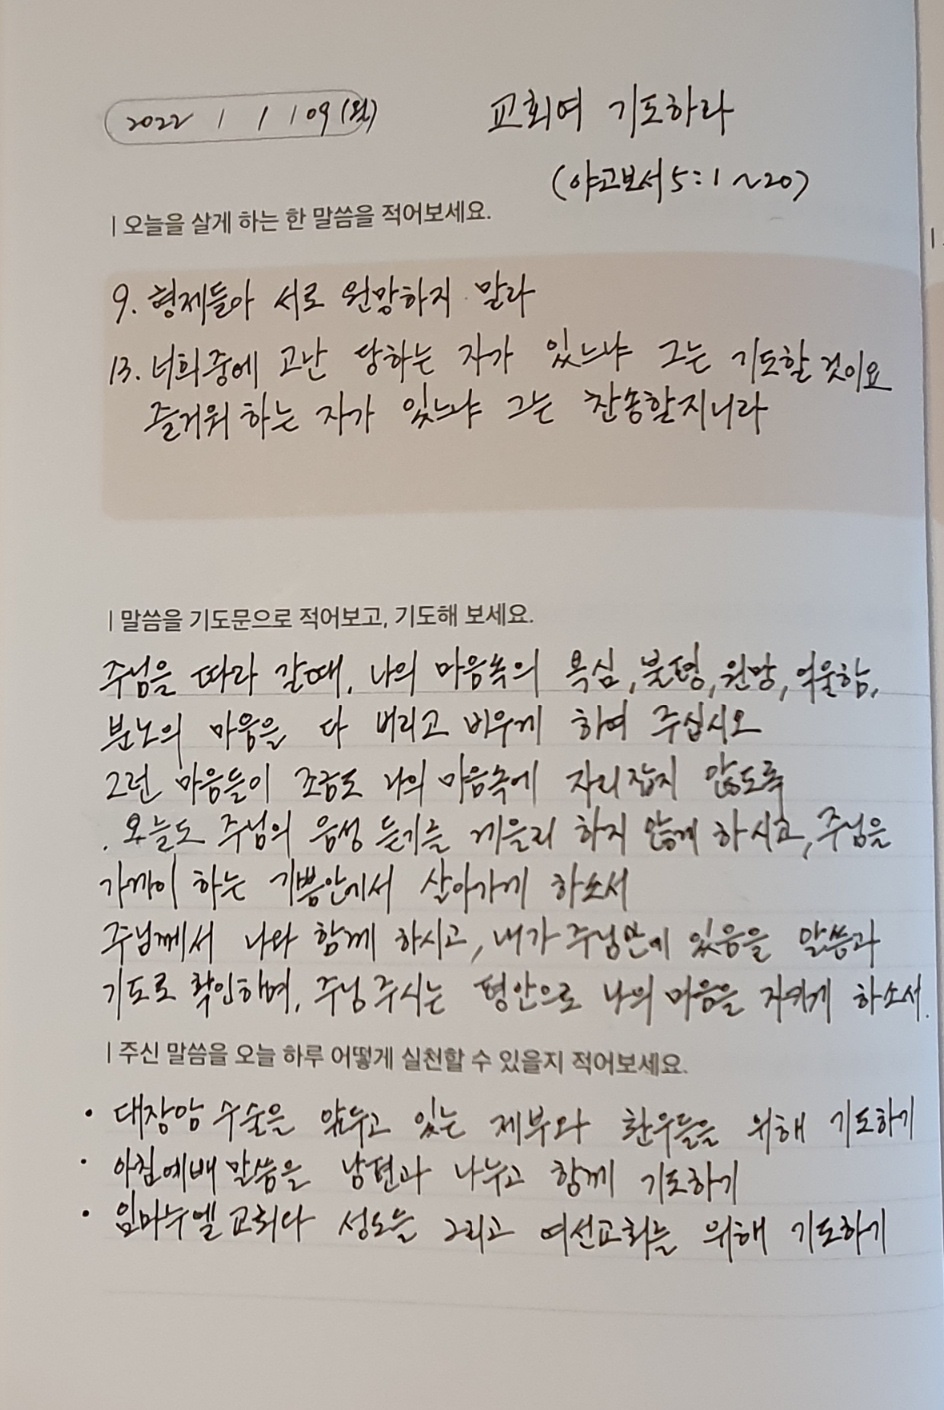 2022 / 1 / 09 (월)
교회여 기도하라
(야고보서 5:1~20)
| 오늘을 살게 하는 한 말씀을 적어보세요.
9. 형제들아 서로 원망하지 말라
13. 너희중에 고난 당하는 자가 있느냐 그는 기도할 것이요
즐거워 하는 자가 있느냐 그는 찬송할지니라
| 말씀을 기도문으로 적어보고, 기도해 보세요.
주님을 따라 갈때, 나의 마음속의 욕심, 불평, 원망, 억울함,
분노의 마음을 다 버리고 비우게 하여 주십시오
그런 마음들이 조금도 나의 마음속에 자리잡지 않도록
. 오늘도 주님의 음성 듣기를 게을리 하지 않게 하시고, 주님을
가까이 하는 기쁨안에서 살아가게 하소서
주님께서 나와 함께 하시고, 내가 주님안에 있음을 말씀과
기도로 확인하며, 주님 주시는 평안으로 나의 마음을 지키게 하소서.
| 주신 말씀을 오늘 하루 어떻게 실천할 수 있을지 적어보세요.
• 대장암 수술을 앞두고 있는 제부와 환우들을 위해 기도하기
• 아침예배 말씀을 남편과 나누고 함께 기도하기
• 임마누엘 교회와 성도들 그리고 여선교회를 위해 기도하기